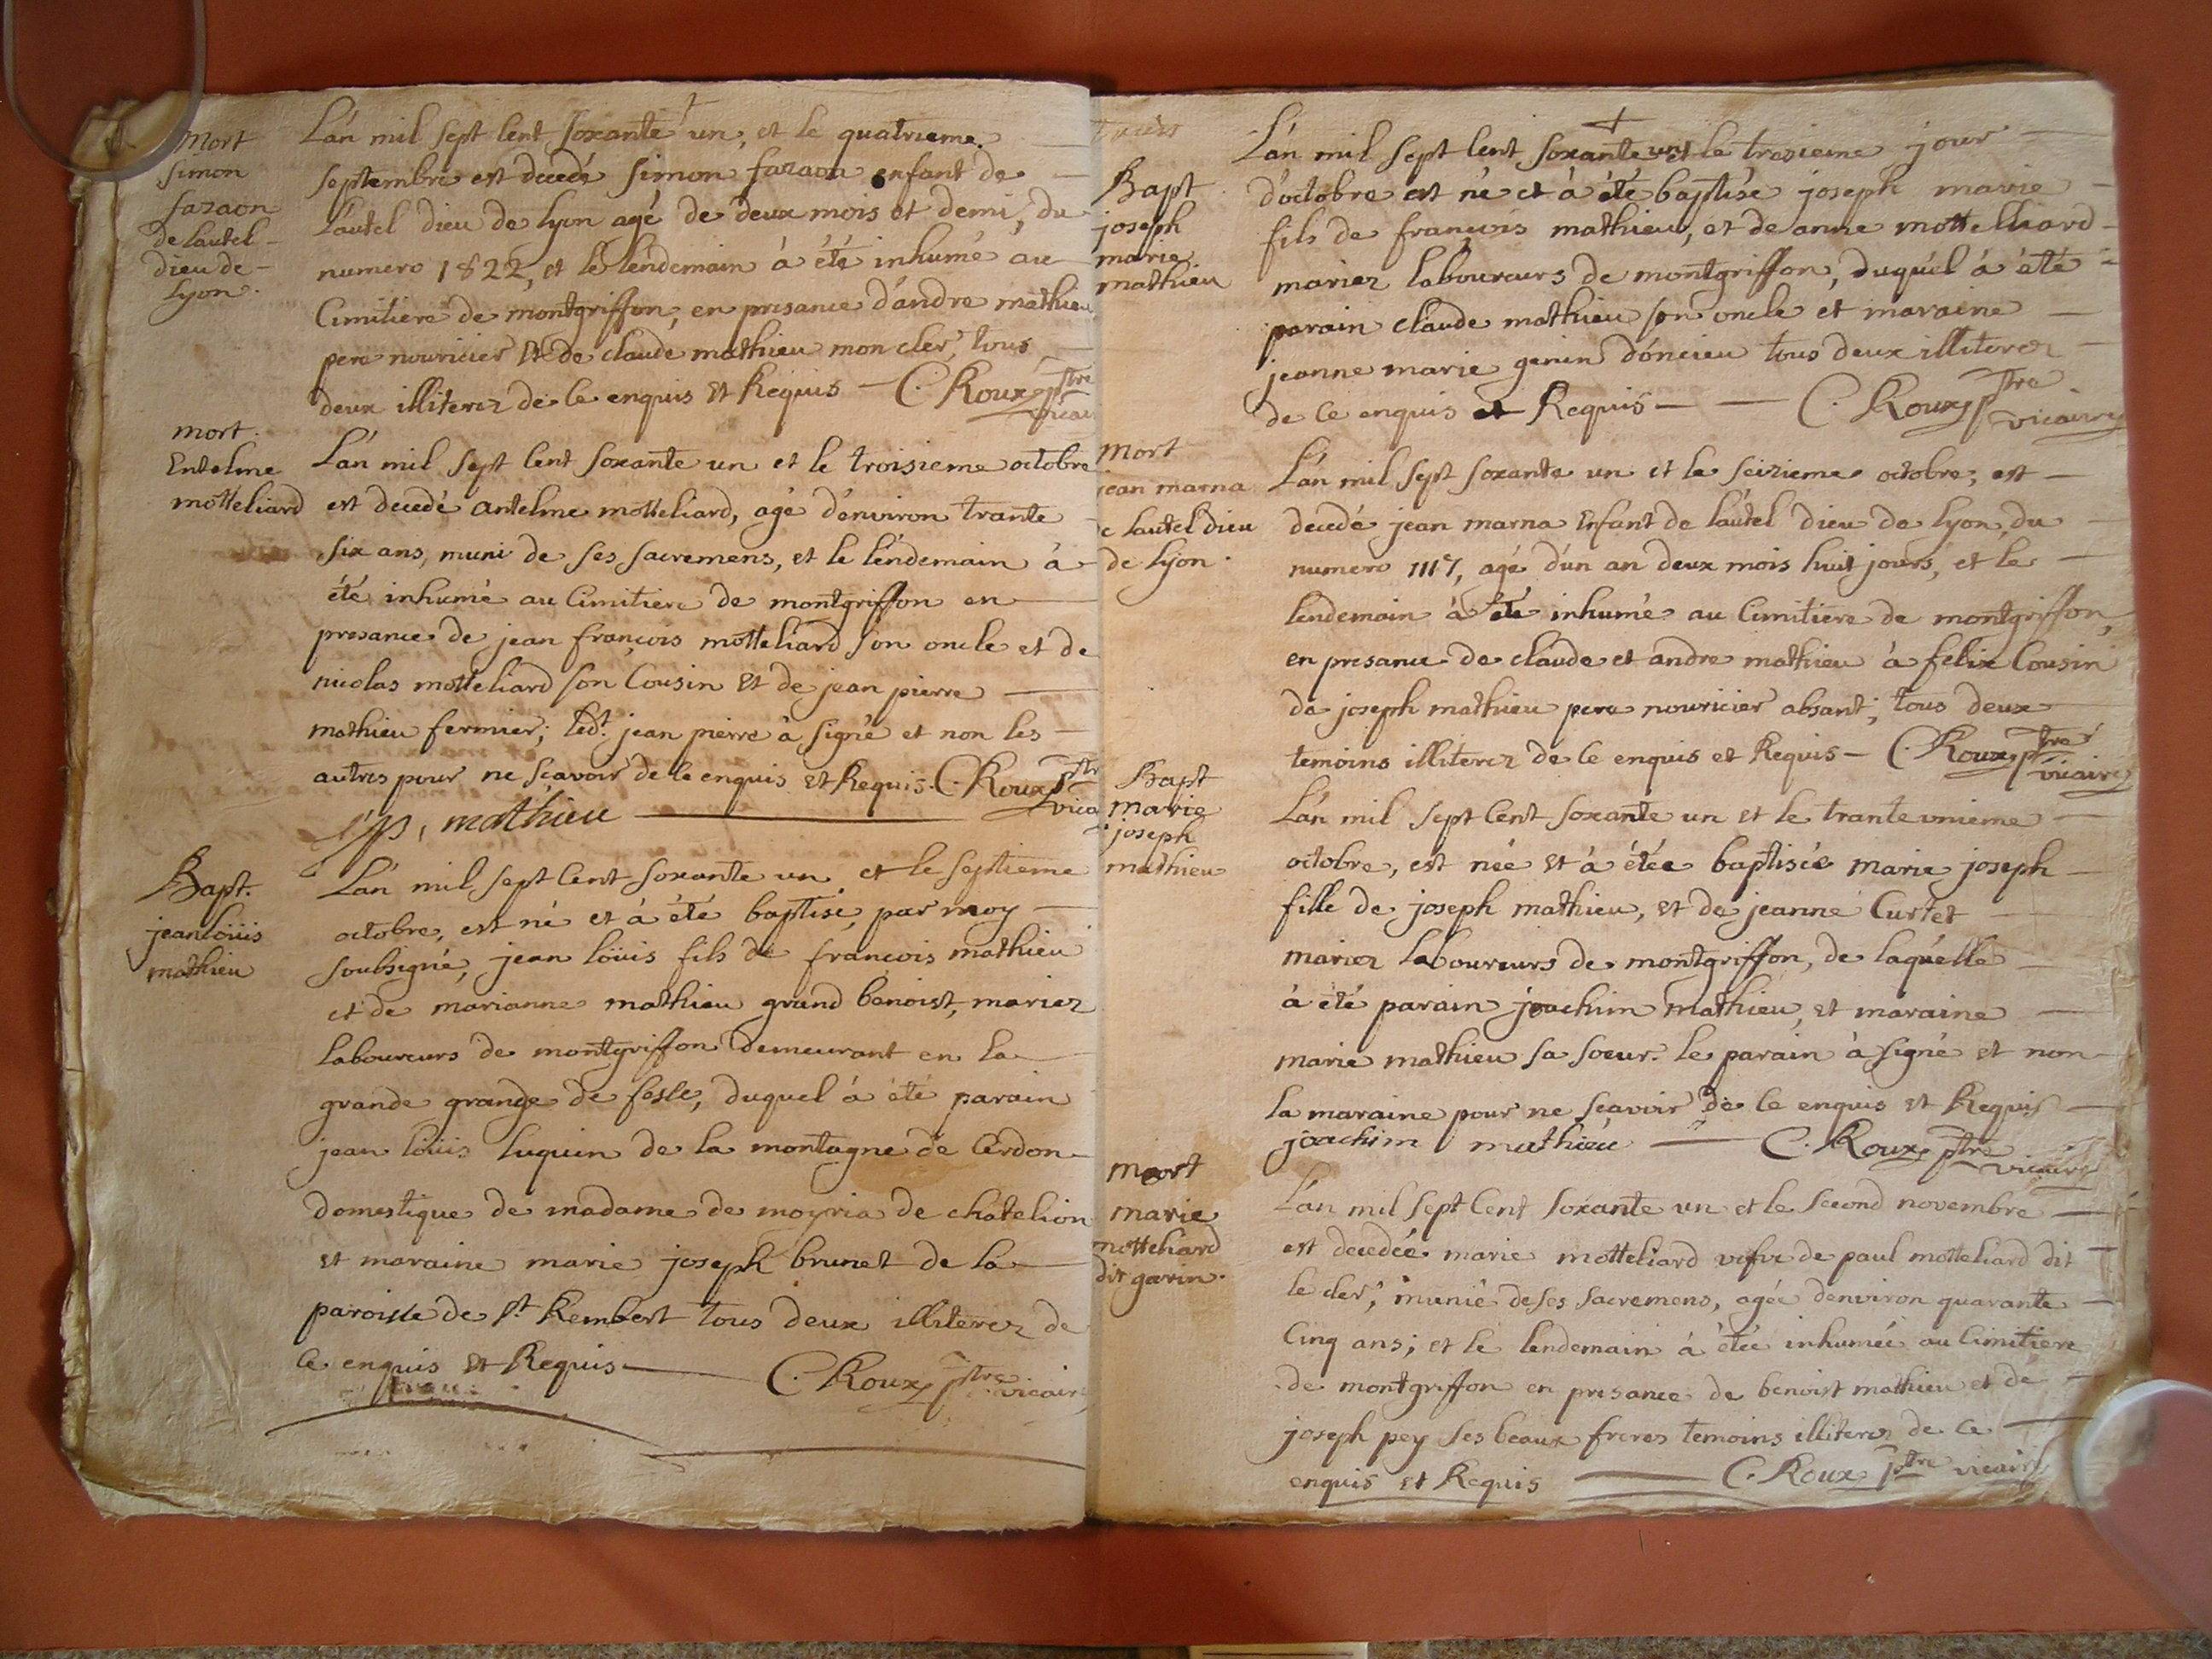 Mort
Simon
faraon
de lautel
dieu de
Lyon.
L'an mil sept Cent Soxante un, et le quatrieme
septembre est decedé Simon faraon enfant de
L'autel dieu de Lyon agé de deux mois et demi, du
numero 1822, et le lendemain à été inhumé au
Cimitiere de montgriffon, en presance d'andre mathieu
pere nouricier Et de claude mathieu mon cler, tous
deux illiterez de Ce enquis Et Requis — C. Roux ptre
vicai
mort.
Entelme
motteliard
L'an mil Sept Cent Soxante un et le troisieme octobre
est decedé antelme motteliard, agé d'environ trante
six ans, muni de ses sacremens, et le lendemain à
été inhumé au Cimitiere de montgriffon en
presance de jean françois motteliard son oncle et de
nicolas motteliard son Cousin Et de jean pierre
mathieu fermier; ledt. jean pierre à signé et non les
autres pour ne sçavoir de Ce enquis Et Requis. C. Roux ptr
vica
mathieu
Bapt.
jean loüis
mathieu
L'an mil sept Cent Soxante un et le septieme
octobre, est né et à été baptisé, par moy
soubsigné, jean loüis fils de françois mathieu
et de marianne mathieu grand benoist, mariez
laboureurs de montgriffon demeurant en la
grande grange de fesle, duquel à été parain
jean loüis luquin de la montagne de Cerdon
domestique de madame de moyria de chatelion
et maraine marie joseph brunet de la
paroisse de St. Rembert tous deux illiterez de
Ce enquis Et Requis — C. Roux ptre vicair
Bapt
joseph
marie
mathieu
L'an mil sept Cent Soxante un et le trosieme jour
d'octobre est né et à été baptisé joseph marie
fils de françois mathieu, et de anne mottelliard
mariez laboureurs de montgriffon, duquel à été
parain claude mathieu son oncle et maraine
jeanne marie genin d'oncieu tous deux illiterez
de Ce enquis et Requis — — C. Roux ptre
vicaire
Mort
jean marna
e lautel dieu
de Lyon.
L'an mil sept soxante un et le seizieme octobre, est
decedé jean marna Enfant de lautel dieu de Lyon, du
numero 1117, agé d'un an deux mois huit jours, et le
lendemain à été inhumé au Cimitiere de montgriffon,
en presance de claude et andre mathieu à felix Cousin
de joseph mathieu pere nouricier absant; tous deux
temoins illiterez de Ce enquis et Requis — C. Roux ptre
vicaire
Bapt
marie
joseph
mathieu
L'an mil sept Cent Soxante un et le trante unieme
octobre, est née et à étée baptisée marie joseph
fille de joseph mathieu, et de jeanne Curtet
mariez laboureurs de montgriffon, de laquelle
à été parain joachim mathieu, et maraine
marie mathieu sa soeur. le parain à signé et non
la maraine pour ne sçavoir de Ce enquis et Requis
joachim mathieu — C. Roux ptre
vicaire
mort
marie
motteliard
dit garin.
L'an mil sept Cent Soxante un et le second novembre
est decedée marie motteliard vefve de paul motteliard dit
le cler, munie de ses sacremens, agée denviron quarante
Cinq ans; et le lendemain à étée inhumée au Cimitiere
de montgriffon en presance de benoist mathieu et de
joseph pey ses beaux freres temoins illiterez de Ce
enquis et Requis — C. Roux ptre vicaire